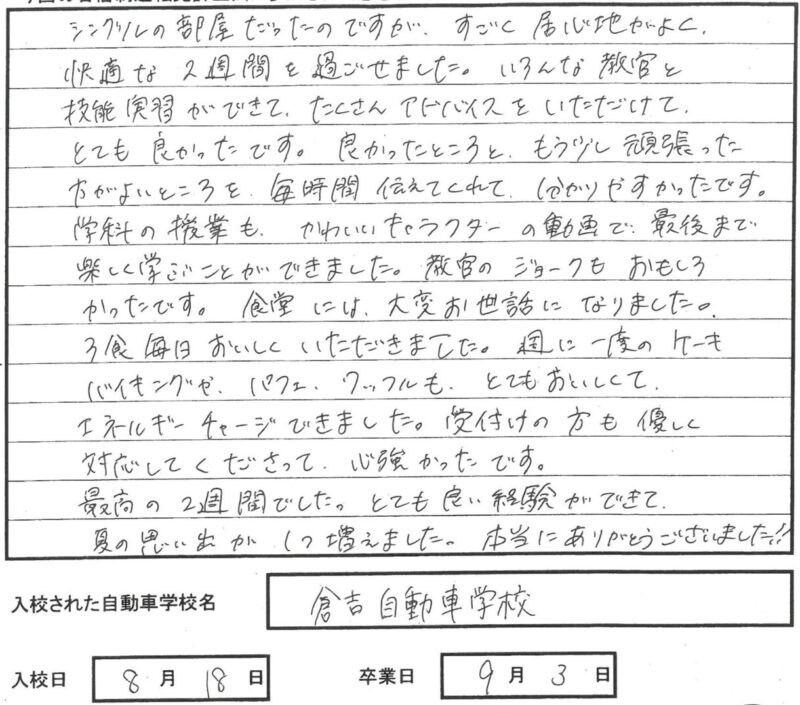 シングルの部屋だったのですが、すごく居心地がよく、
快適な2週間を過ごせました。いろんな教官と
技能実習ができて、たくさんアドバイスをいただけて、
とても良かったです。良かったところと、もう少し頑張った
方がよいところを、毎時間伝えてくれて、分かりやすかったです。
学科の授業も、かわいいキャラクターの動画で、最後まで
楽しく学ぶことができました。教官のジョークもおもしろ
かったです。食堂には、大変お世話になりました。
3食毎日おいしくいただきました。週に一度のケーキ
バイキングや、パフェ、ワッフルも、とてもおいしくて、
エネルギーチャージできました。受付けの方も優しく
対応してくださって、心強かったです。
最高の2週間でした。とても良い経験ができて、
夏の思い出が1つ増えました。本当にありがとうございました!!
入校された自動車学校名 倉吉自動車学校
入校日 8月18日 卒業日 9月3日